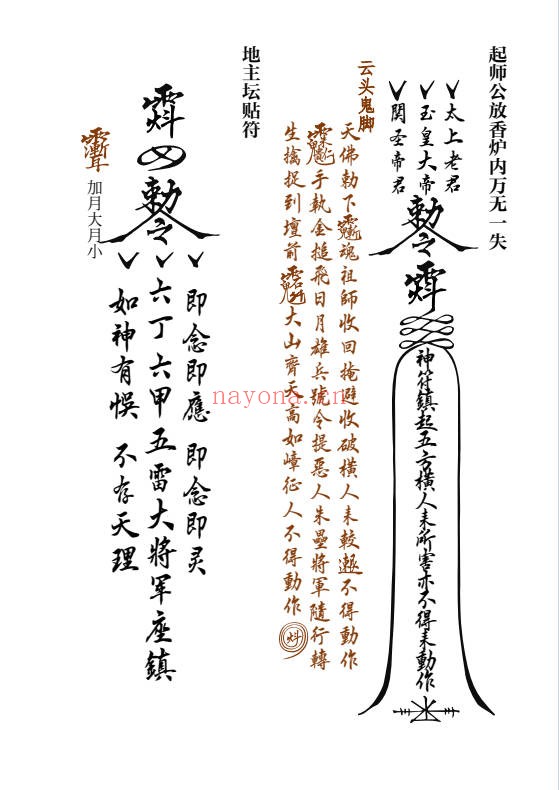 起师公放香炉内万无一失
太上老君
玉皇大帝
関圣帝君
勅令
神符鎮起五方橫人耒所害亦不得耒動作
云头鬼脚
天佛勅下魂祖師收回掩避收破橫人耒較不得動作
手執金搥飛日月雄兵號令提惡人朱壘將軍隨行轉
生擒捉到壇前大山齊天高如嶂征人不得動作
地主坛贴符
勅令
即念即應 即念即灵
六丁六甲五雷大將军座鎮
如神有悞 不存天理
加月大月小
nayona.cn